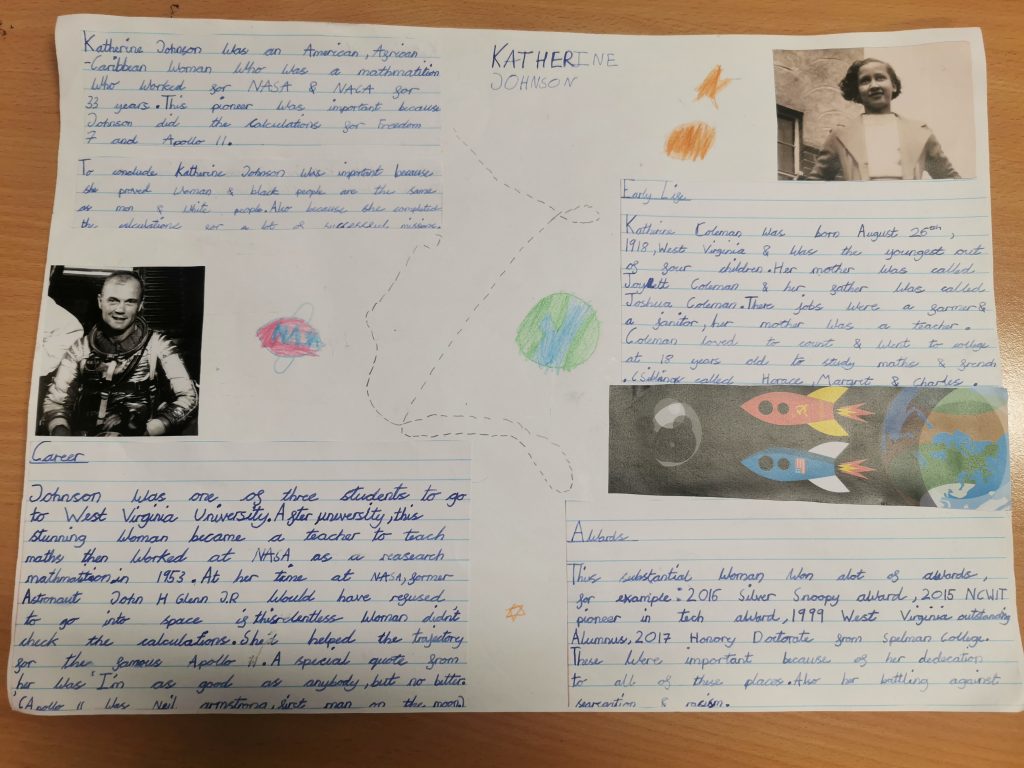 Katherine Johnson was an American, African
-Caribbean woman who was a mathmatition
who worked for NASA & NACA for
33 years. This pioneer was important because
Johnson did the calculations for Freedom
7 and Apollo 11.
To conclude Katherine Johnson was important because
she proved woman & black people are the same
as men & white people. Also because she completed
the calculations for a lot of successful missions.
KATHERINE
JOHNSON
Early Life
Katherine Coleman was born August 26th,
1918, West Virginia & was the youngest out
of four children. Her mother was called
Joylett Coleman & her father was called
Joshua Coleman. There jobs were a farmer &
a janitor, her mother was a teacher.
Coleman loved to count & went to college
at 18 years old to study maths & french
. (Siblings called Horace, Margrit & Charles.
NASA
Career
Johnson was one of three students to go
to West Virginia University. After university, this
stunning woman became a teacher to teach
maths then worked at NASA as a reasearch
mathmattion in 1953. At her time at NASA, former
Astronaut John H Glenn J.R would have refused
to go into space if this woman didn't
check the calculations. She helped the trajectory
for the famous Apollo 11. A special quote from
her was "I'm as good as anybody, but no better.
(Apollo 11 was Neil armstrong, first man on the moon)
Awards
This substantial woman won alot of awards,
for example: 2016 Silver Snoopy award, 2015 NCWIT
pioneer in tech award, 1999 West Virginia outstanding
Alumnus, 2017 Honory Doctorate from Spelman College.
These were important because of her dedecation
to all of these places. Also her battling against
& racism.